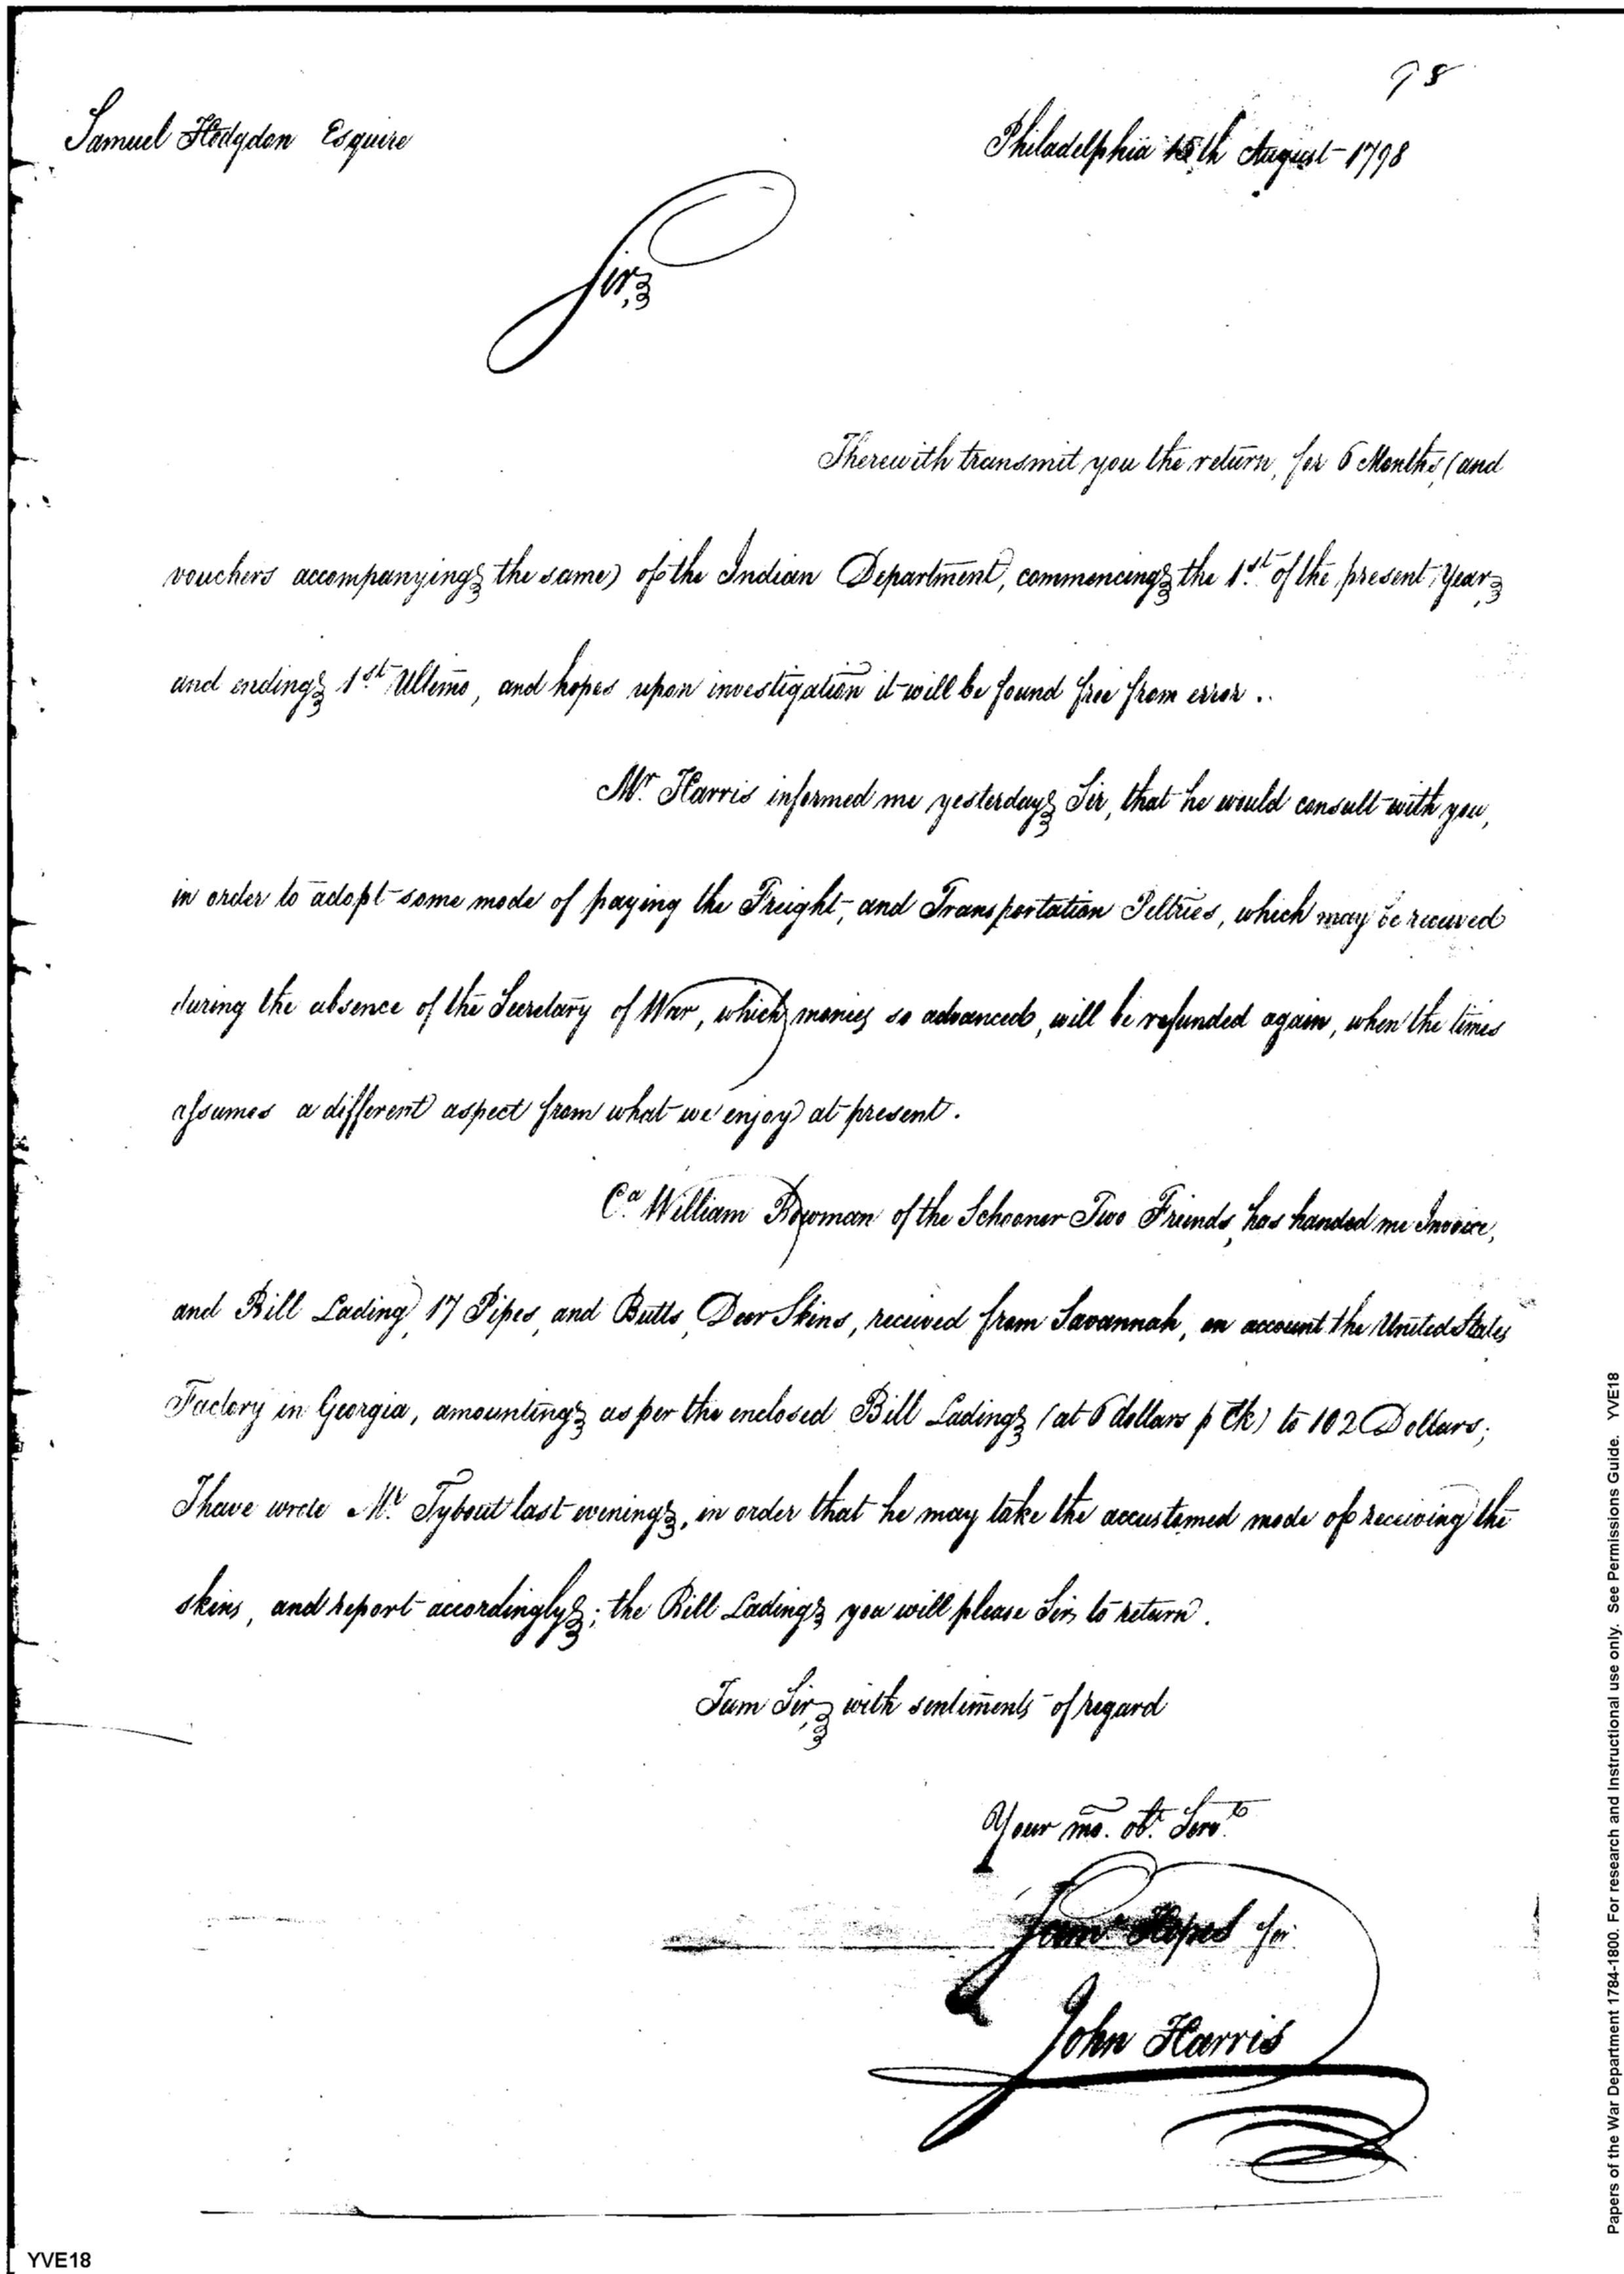 98
Samuel Hodgdon Esquire
Philadelphia 15th August 1798
Sir,
I herewith transmit you the return, for 6 Months, (and
vouchers accompanying the same) of the Indian Department, commencing the 1st of the present Year,
and ending 1st Ultimo, and hopes upon investigation it will be found free from error..
Mr. Harris informed me yesterday Sir, that he would consult with you,
in order to adopt some mode of paying the Freight, and Transportation Peltries, which may be received
during the absence of the Secretary of War, which monies so advanced, will be refunded again, when the times
assumes a different aspect from what we enjoy at present.
Ca. William Bowman of the Schooner Two Friends, has handed me Invoice,
and Bill Lading, 17 Pipes, and Butts, Deer Skins, received from Savannah, on account the United States
Factory in Georgia, amounting as per the enclosed Bill Lading (at 6 dollars p Ck) to 102 Dollars;
I have wrote Mr. Tybout last evening, in order that he may take the accustomed mode of receiving the
skins, and report accordingly; the Bill Lading you will please Sir, to return.
I am Sir, with sentiments of regard
Your mo. ob. Servt.
for
John Harris
YVE18
Papers of the War Department 1784-1800. For research and Instructional use only. See Permissions Guide. YVE18